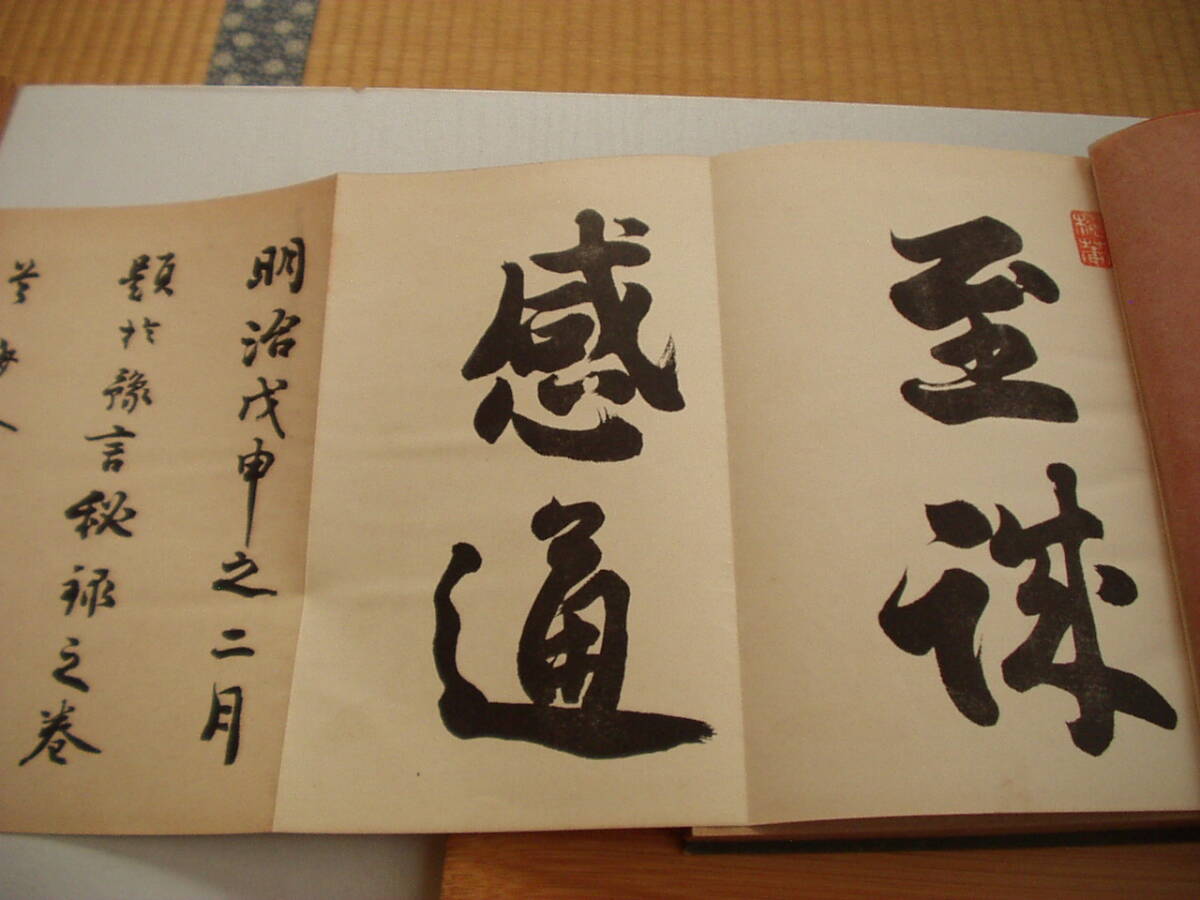 至誠
感通
明治戊申之二月
題於豫言秘録之巻